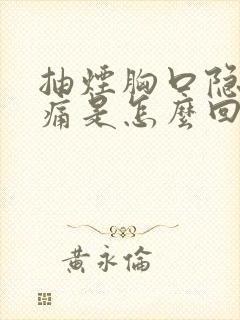 抽煙胸口隐
痛是怎麼回
黃永倫